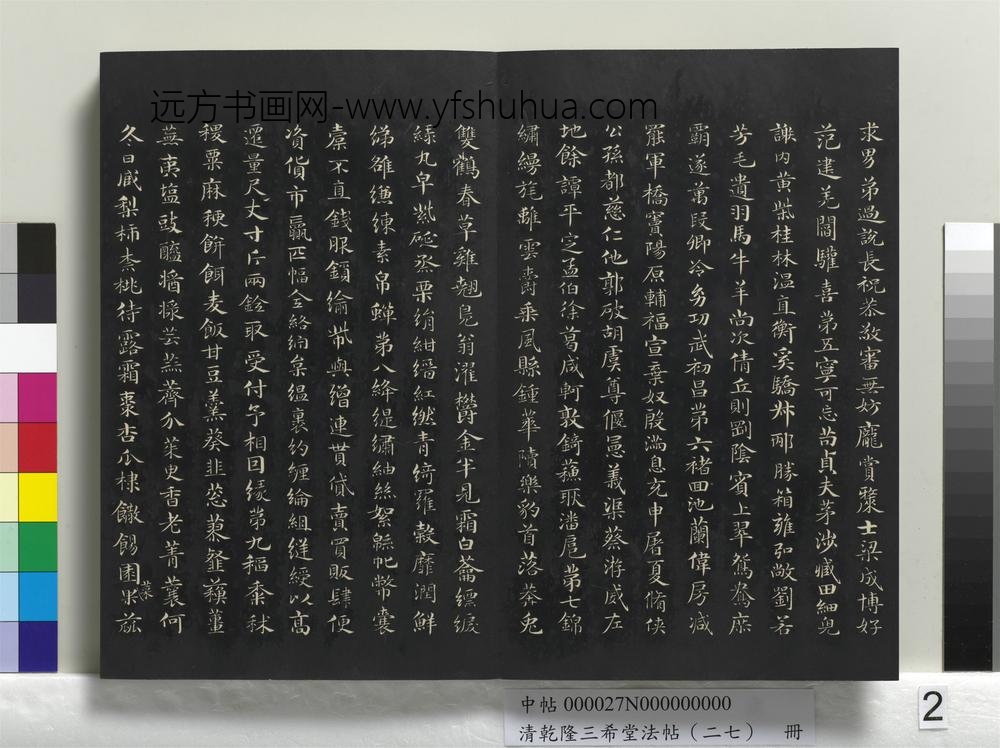 远方书画网-www.yfshuhua.com
求男弟過說長祝恭敬審無妨龐賞贛士梁成博好
范建羌閻驩喜第五寧可忘苟貞夫茅涉臧田細兒
謝內黃柴桂林溫直衡奚驕叔邴勝箱雍弘敞劉若
芳毛遺羽馬牛羊尚次倩丘則劉陰賓上翠鴛鴦庶
霸遂萬段卿冷幼功武初昌第六褚回池蘭偉房減
罷軍橋竇陽原輔福宣棄奴殷滿息充申屠夏脩俠
公孫都慈仁他郭破胡虞尊偃憲義渠蔡游威左
地餘譚平定孟伯徐葛咸軻敦錡蘇耿潘扈第七錦
繡縵旄離雲爵乘風縣鍾華隤樂豹首落莽兔
雙鶴春草雞翹鳧翁濯鬱金半見霜白蘥縹綟
綠丸皁紫硟烝栗絹紺縉紅繎青綺羅縠靡潤鮮
綈雒縑練素帛蟬第八絳緹繡紬絲絮綿帊幣囊
橐不直錢服鎖綸帶與繒連貰貸賣買販肆便
資貨市贏匹幅全絡紵枲縕裹約纏綸組縫綬以高
遷量尺丈寸斤兩銓取受付予相因緣第九稻黍秫
稷粟麻秔餅餌麦飯甘豆羹葵韭葱蓼韰蘇薑
蕪荑塩豉醯醬漿芸蒜薺介茱臾香老菁蘘何
冬日臧梨柿柰桃待露霜棗杏瓜棣饊餳園菜果蓏
中帖 000027N000000000
清乾隆三希堂法帖（二七） 冊
2